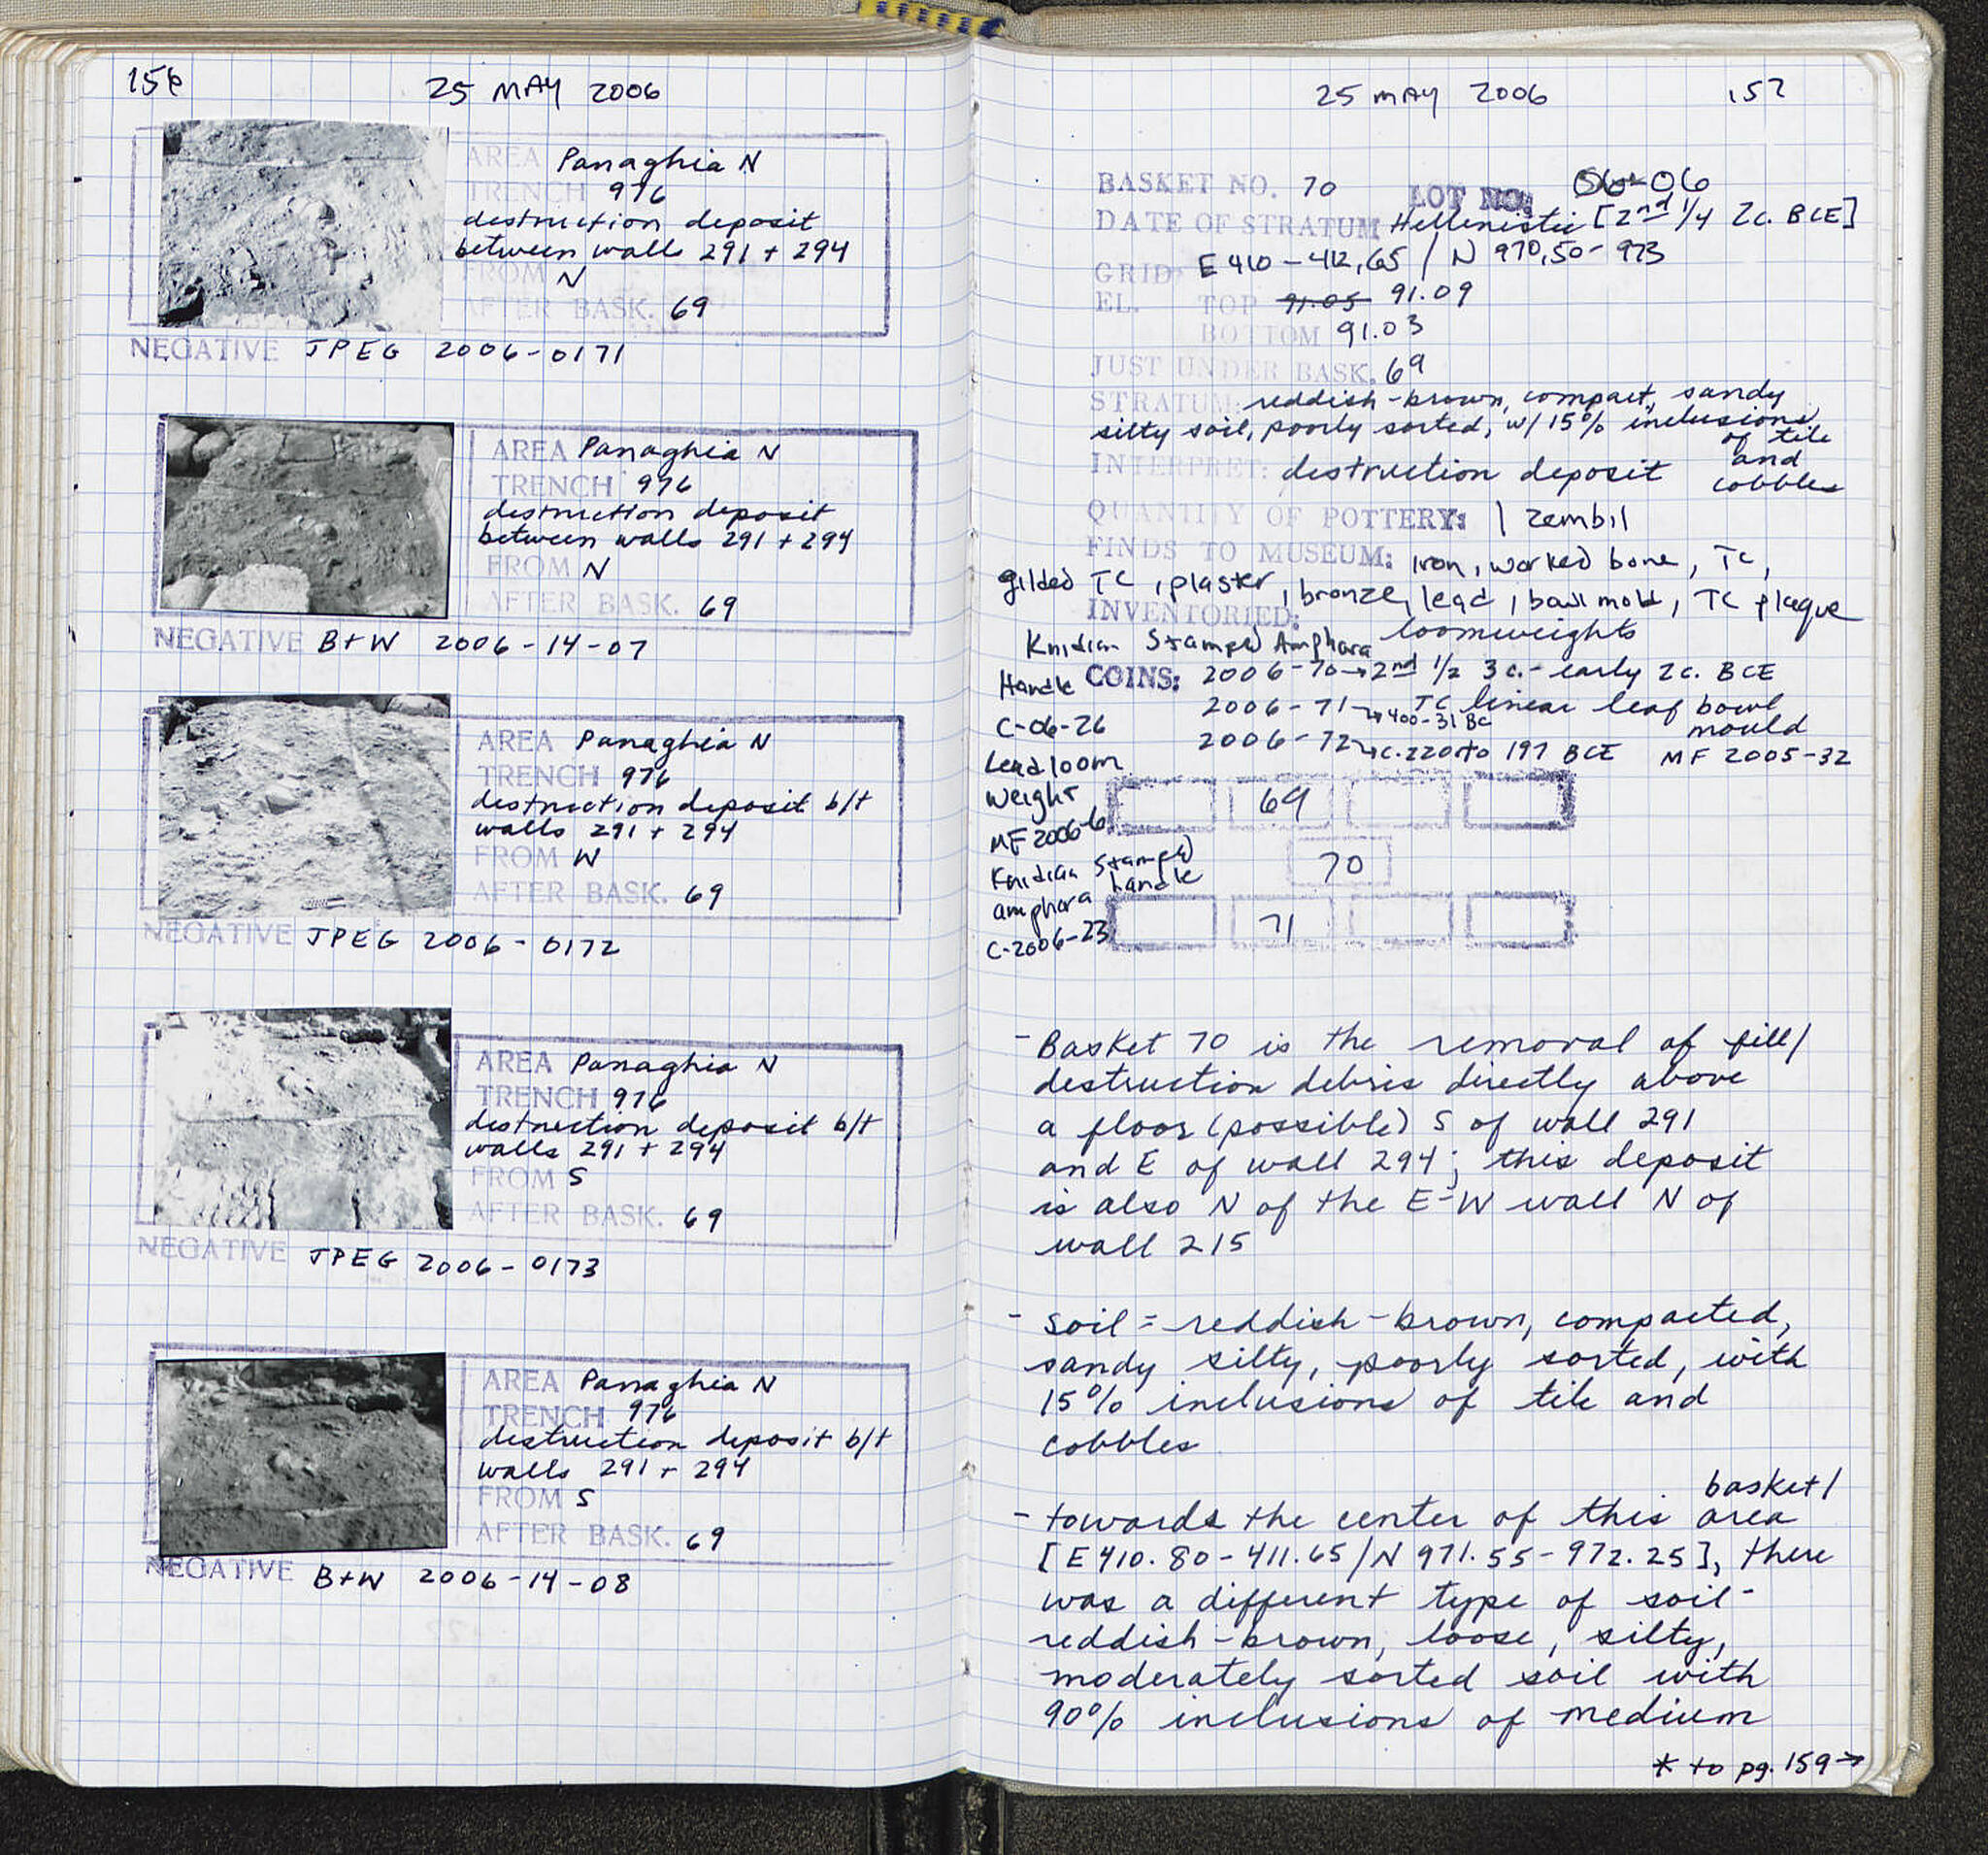 156 25 MAY 2006
AREA Panaghia N
TRENCH 976
destruction deposit
between walls 291 + 294
FROM N
AFTER BASK. 69
NEGATIVE JPEG 2006-0171
AREA Panaghia N
TRENCH 976
destruction deposit
between walls 291 + 294
FROM N
AFTER BASK. 69
NEGATIVE B+W 2006-14-07
AREA Panaghia N
TRENCH 976
destruction deposit b/t
walls 291 + 294
FROM W
AFTER BASK. 69
NEGATIVE JPEG 2006-0172
AREA Panaghia N
TRENCH 976
destruction deposit b/t
walls 291 + 294
FROM S
AFTER BASK. 69
NEGATIVE JPEG 2006-0173
AREA Panaghia N
TRENCH 976
destruction deposit b/t
walls 291 + 294
FROM S
AFTER BASK. 69
NEGATIVE B+W 2006-14-08
25 MAY 2006 157
BASKET NO. 70 LOT NO: 06
DATE OF STRATUM Hellenistic [2nd 1/4 2c. BCE]
GRID: E 410-412,65 / N 970,50-973
EL. TOP 91.05 91.09
BOTTOM 91.03
JUST UNDER BASK. 69
STRATUM: reddish-brown, compact, sandy
silty soil, poorly sorted, w/ 15% inclusions
of tile
and
cobbles
INTERPRET: destruction deposit
QUANTITY OF POTTERY: 1 zembil
FINDS TO MUSEUM: Iron, worked bone, TC,
gilded TC, plaster, bronze, lead, bowl mold, TC plaque
INVENTORIED: loomweights
Knidian Stamped Amphora
Handle
C-06-26
Lead loom
weight
MF 2006-6
Knidian stamped
amphora handle
C-2006-23
COINS: 2006-70→2nd 1/2 3c.-early 2c. BCE
2006-71→400-31 BC
2006-72→c.220 to 197 BCE
TC linear leaf bowl
mould
MF 2005-32
69
70
71
- Basket 70 is the removal of fill/
destruction debris directly above
a floor (possible) S of wall 291
and E of wall 294; this deposit
is also N of the E-W wall N of
wall 215
- soil = reddish-brown, compacted,
sandy silty, poorly sorted, with
15% inclusions of tile and
cobbles
- towards the center of this basket/area
[E 410.80-411.65/N 971.55-972.25], there
was a different type of soil-
reddish-brown, loose, silty,
moderately sorted soil with
90% inclusions of medium
* to pg. 159→